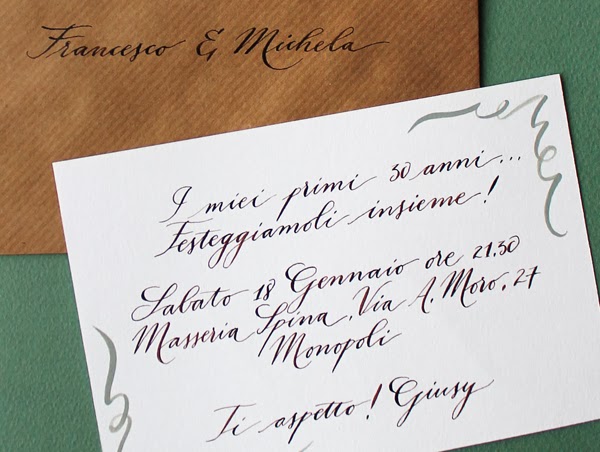 Francesco & Michela
I miei primi 30 anni...
Festeggiamoli insieme!
Sabato 18 Gennaio ore 21,30
Masseria Spina, Via A. Moro, 27
Monopoli
Ti aspetto! Giusy